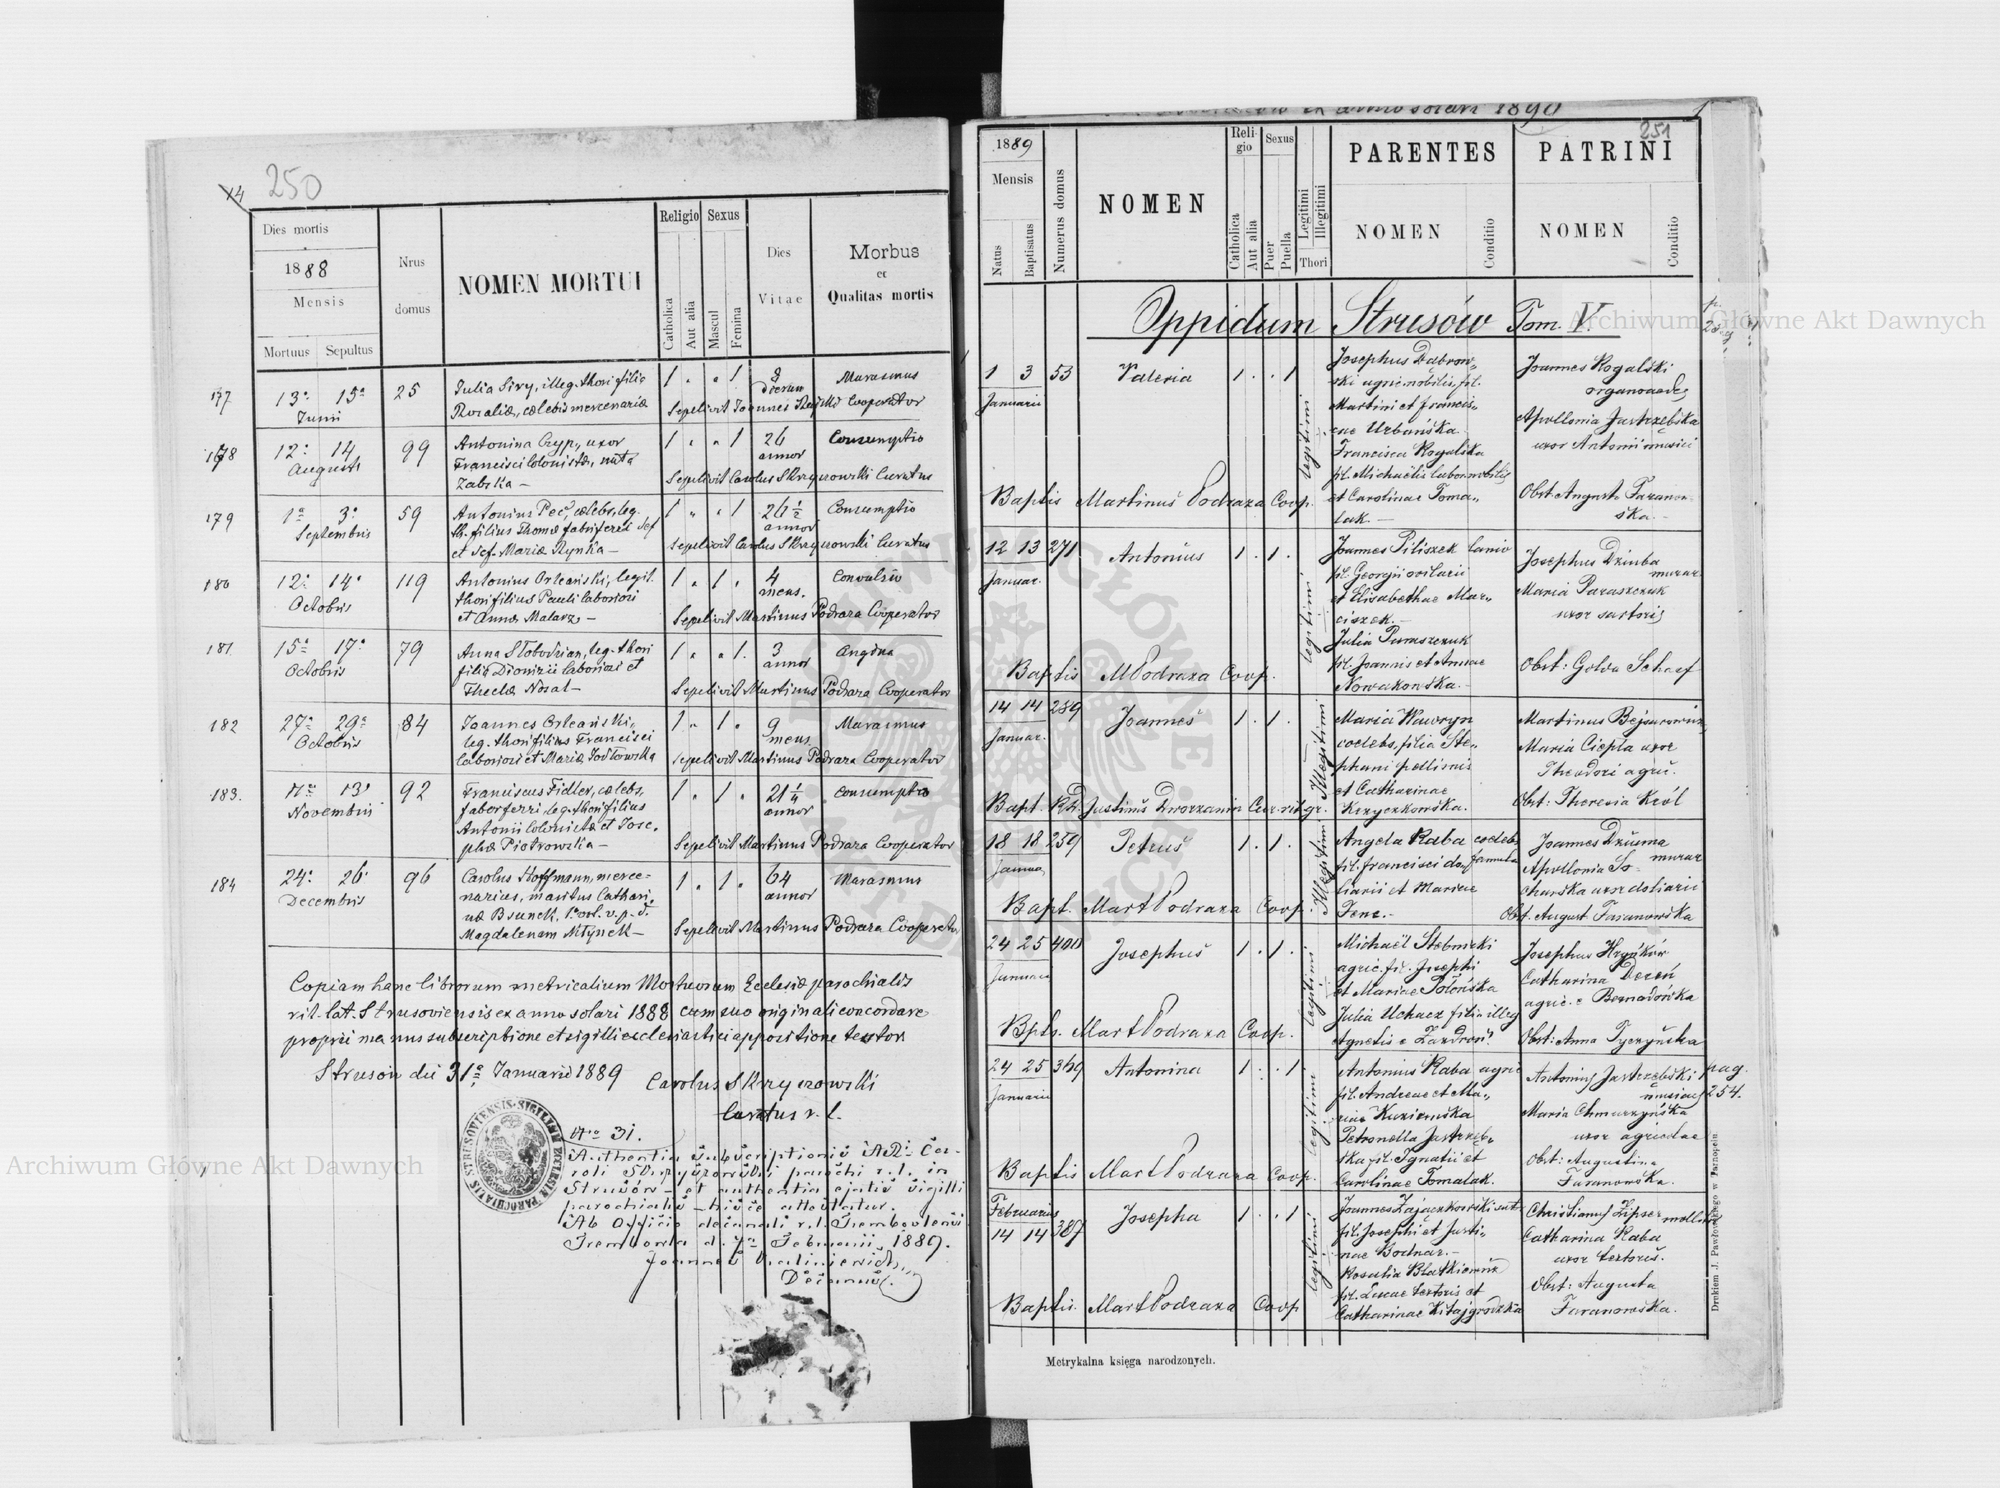 14
250
Dies mortis
1888
Mensis
Mortuus Sepultus
Nrus domus
NOMEN MORTUI
Religio Sexus
Catholica
Aut alia
Mascul
Femina
Dies
Vitae
Morbus
et
Qualitas mortis
177 13ª 15ª 25 Julia Siry, illeg. thori filia 1 " " 1 8 Marasmus
Junii Rosaliæ, cælebis mercenariæ dierum
Sepelivit Joannes Cooperator
178 12ª 14 99 Antonina Czyp, uxor 1 " " 1 26 Consumptio
Augusti Francisci colonistæ, nata annor
Zabska —
Sepelivit Carolus Skrzyszowski Curatus
179 1ª 3ª 59 Antonius Peć, cælebs, leg. 1 " " 1 26½ Consumptio
Septembris th. filius Thomæ fabriferri def annor
et def. Mariæ Rynka —
Sepelivit Carolus Skrzyszowski Curatus
180 12ª 14ª 119 Antonius Orleański, legit. 1 " 1 " 4 Convulsio
Octobris thori filius Pauli laboriosi mens.
et Annæ Malarz —
Sepelivit Martinus Podraza Cooperator
181 15ª 17ª 79 Anna Słobodzian, leg. thori 1 " " 1. 3 Angina
Octobris filia Dionizii laboriosi et annor
Theclæ Nosal —
Sepelivit Martinus Podraza Cooperator
182 27ª 29ª 84 Joannes Orleański, 1 " 1 " 9 Marasmus
Octobris leg. thori filius Francisci mens.
laboriosi et Mariæ Jodłowska
Sepelivit Martinus Podraza Cooperator
183. 11ª 13ª 92 Franciscus Fidler, cælebs, 1 " 1 " 21¼ Consumptio
Novembris faber ferri, leg. thori filius annor
Antonii colonistæ et Jose-
phæ Piotrowska —
Sepelivit Martinus Podraza Cooperator
184 24ª 26ª 96 Carolus Hoffmann, merce- 1 " 1 " 64 Marasmus
Decembris narius, maritus Cathari- annor
næ Bsunek. 1º vol. v. p. d.
Magdalenam Młynek —
Sepelivit Martinus Podraza Cooperator
Copiam hanc librorum metricalium Mortuorum Ecclesiæ parochialis
rit. lat. Strusoviensis ex anno solari 1888 cum suo originali concordare
propria manus subscriptione et sigilli ecclesiastici appositione testor
Strusów die 31ª Januarii 1889
Carolus Skrzyszowski
Curatus r. l.
Nro 31.
Authentia subscriptionis ADi Ca-
roli Skrzyszowski parochi r. l. in
Strusów — et authentia ejatis sigilli
parochialis — hisce attestatur.
Ab Officio decanali r. l. Trembovlensi
Trembowla d. 7ª Februarii 1889.
Decanus.
251
1889
Mensis
Natus
Baptisatus
Numerus domus
NOMEN
Religio
Catholica
Aut alia
Sexus
Puer
Puella
Legitimi
Illegitimi
Thori
PARENTES
NOMEN
Conditio
PATRINI
NOMEN
Conditio
Oppidum Strusów Tom. V.
1 3 53 Valeria 1 . . 1 legitimi Josephus Dąbrow- Joannes Rogalski
Januarii ski agric. nobilis, fil. organoædus
Martini et Francis- Apollonia Jastrzębska
cae Urbańska. uxor Antonii musici
Francisca Rogalska
fil. Michaëlis labor. nobilis
et Carolinae Toma- Obst. Augusta Faranow-
lak. — ska. —
Baptis Martinus Podraza Coop.
12 13 271 Antonius 1 . 1 . legitimi Joannes Piliszek lanio Josephus Dziuba
Januar. fil. Georgii murar.
et Elisabethae Mar- Maria Paraszczuk
ciszek. — uxor sartoris
Julia Paraszczuk
fil. Joannis et Annae Obst: Golda Schaef
Nowakowska. —
Baptis M Podraza Coop.
14 14 289 Joannes 1 . 1 . Illegitimi Maria Wawryn Martinus Bejsarowicz,
Januar. coelebs, filia Ste- Maria Ciepła uxor
phani pellionis Theodori agric.
et Catharinae Obst: Theresia Król
Krzyczkowska.
Bapt. RD. Justinus Dworzanin Cur. rit. gr.
18 18 259 Petrus 1 . 1 . Illegitimi Angela Raba coelebs Joannes Dziuma
Januar fil. Francisci do- famula murar
liarii et Mariae Apollonia So-
Fenc. — churska uxor doliarii
Obst. August Faranowska
Bapt. Mart Podraza Coop.
24 25 400 Josephus 1 . 1 . legitimi Michaël Stebnicki Josephus Hryńków
Januarii agric. fil. Josephi Catharina Dereń
et Mariae Połońska agric. e Bernadówka
Julia Uchacz filia illeg
Agnetis e Zazdrość. Obst: Anna Tyczyńska
Bpts. Mart Podraza Coop.
24 25 369 Antonina 1 . . 1 legitimi Antonius Raba agric Antonius Jastrzębski pag.
Januarii fil. Andreae et Ma- musicus 254.
riae Kuziemska Maria Chmurzyńska
Petronella Jastrzęb- uxor agricolae
ska fil. Ignatii et Obst: Augustina
Carolinae Tomalak. Faranowska.
Baptis Mart Podraza Coop.
Februarius
14 14 387 Josepha 1 . . 1 legitimi Joannes Zajączkowski sut. Christianus Lipser mollitor
fil. Josephi et Justi- Catharina Raba
nae Bodnar. — uxor textoris.
Rosalia Blatkiewicz Obst: Augusta
fil. Lucae textoris et Faranowska.
Catharinae Kitajgródzka
Baptis. Mart Podraza Coop
Metrykalna księga narodzonych.
Drukiem J. Pawłowskiego w Tarnopolu
Archiwum Główne Akt Dawnych
Archiwum Główne Akt Dawnych